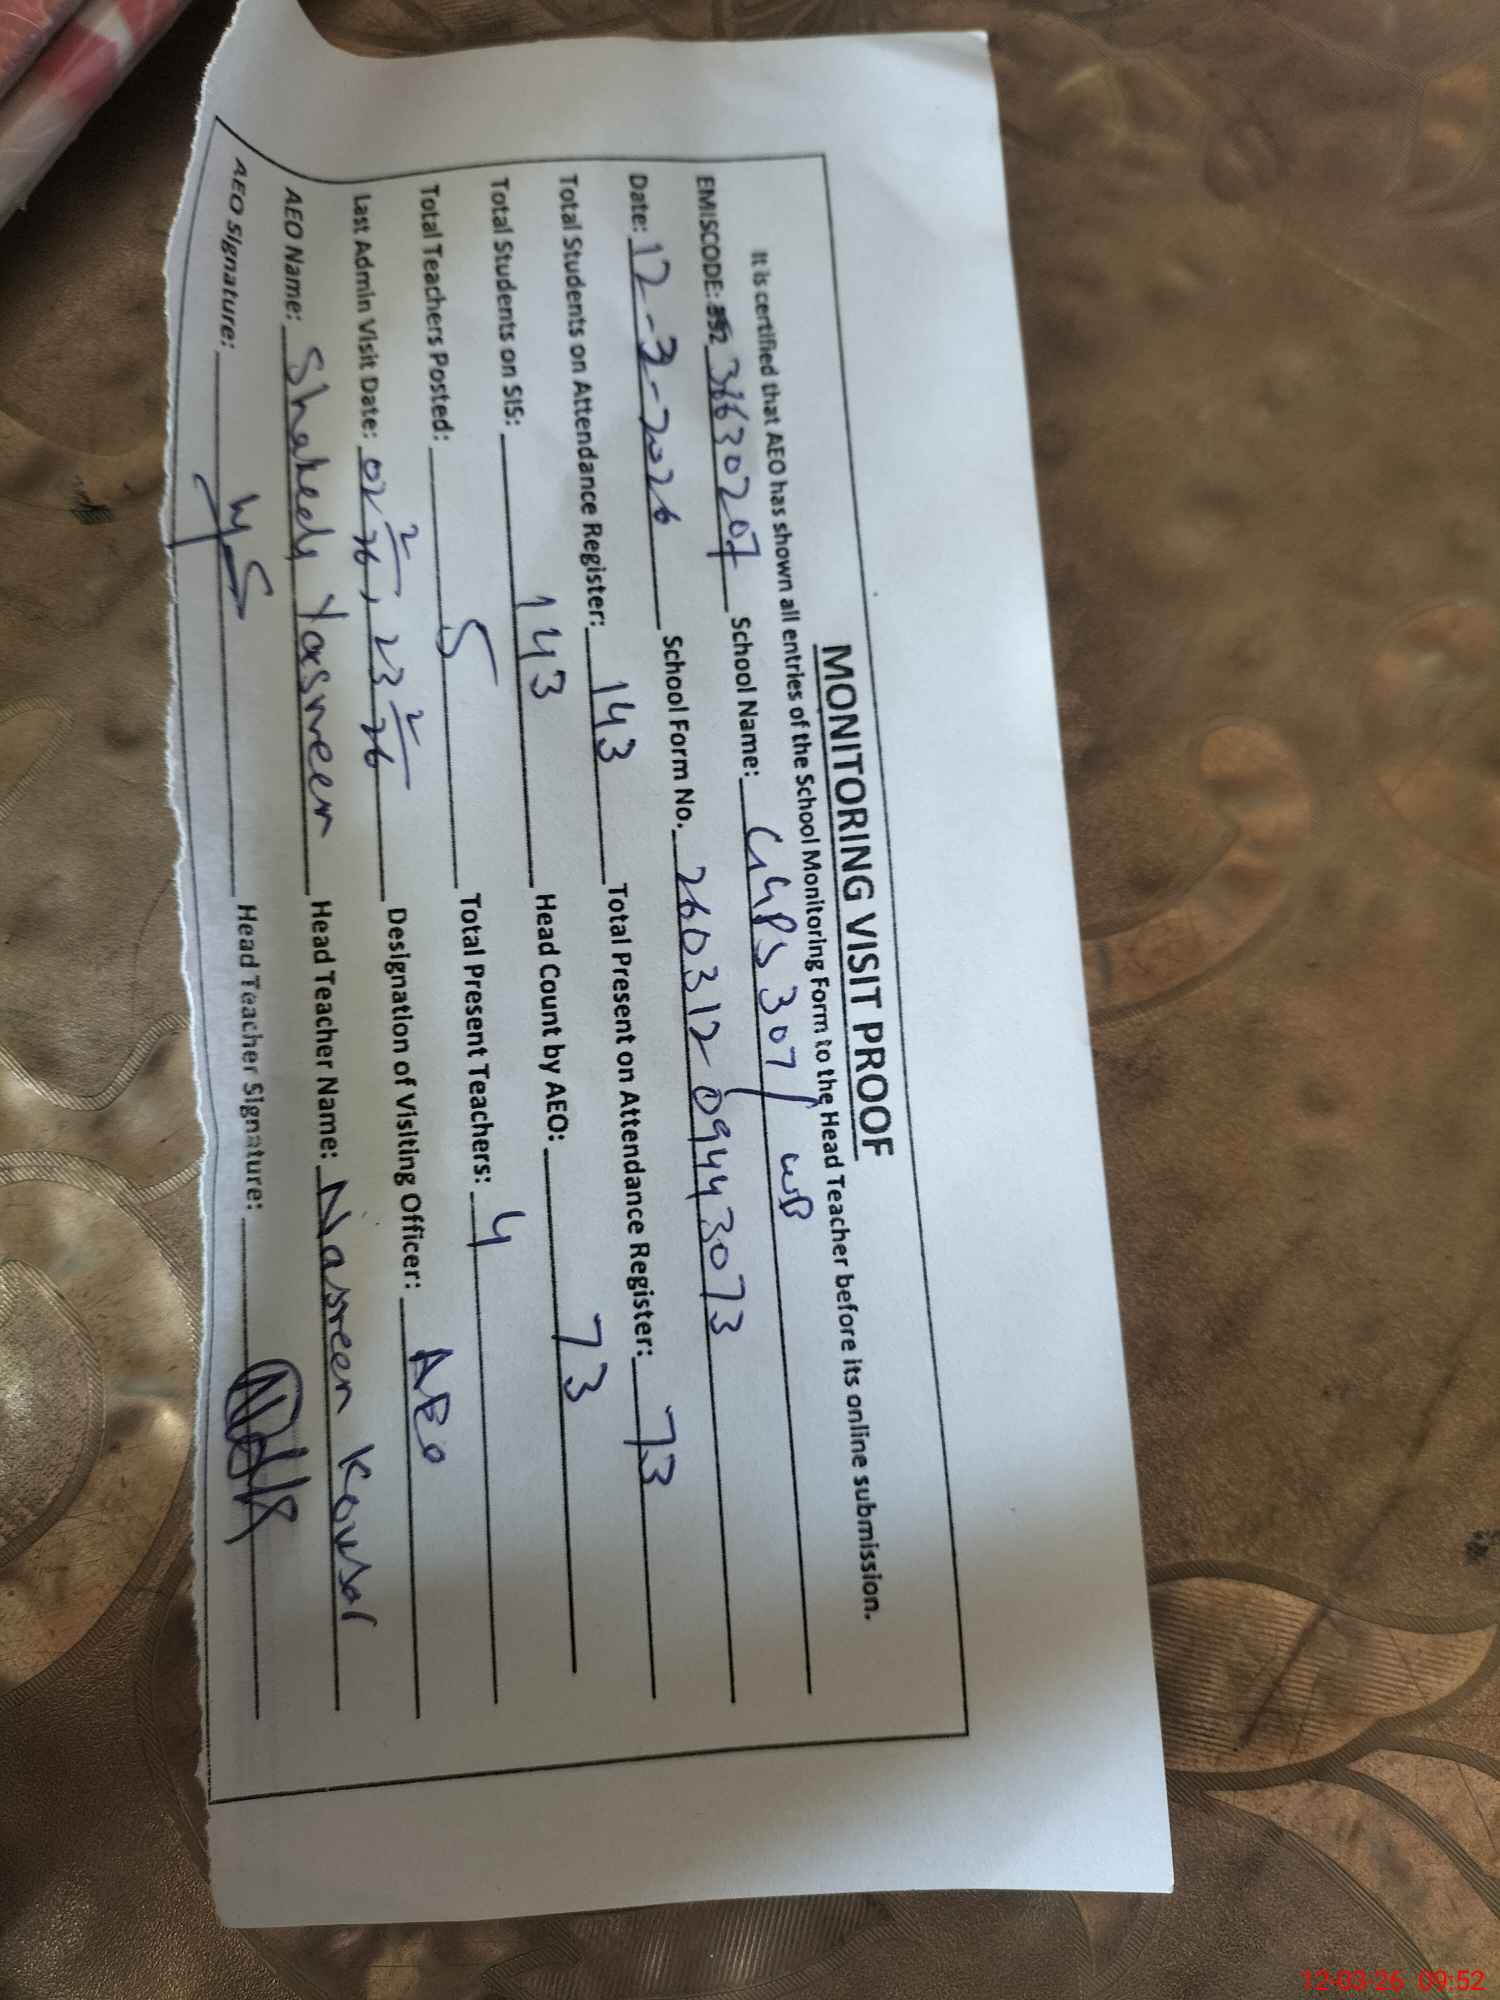 MONITORING VISIT PROOF
It is certified that AEO has shown all entries of the School Monitoring Form to the Head Teacher before its online submission.
EMISCODE: 352 36630207 School Name: GGPS 307/ WB
Date: 12-3-2026 School Form No. 260312 09443073
Total Students on Attendance Register: 143 Total Present on Attendance Register: 73
Total Students on SIS: 143 Head Count by AEO: 73
Total Teachers Posted: 5 Total Present Teachers: 4
Last Admin Visit Date: 02 2/26, 23 2/26 Designation of Visiting Officer: AEO
AEO Name: Shaheda Yasmeen Head Teacher Name: Nasreen Kousar
AEO Signature: Head Teacher Signature:
12-03-26 09:52